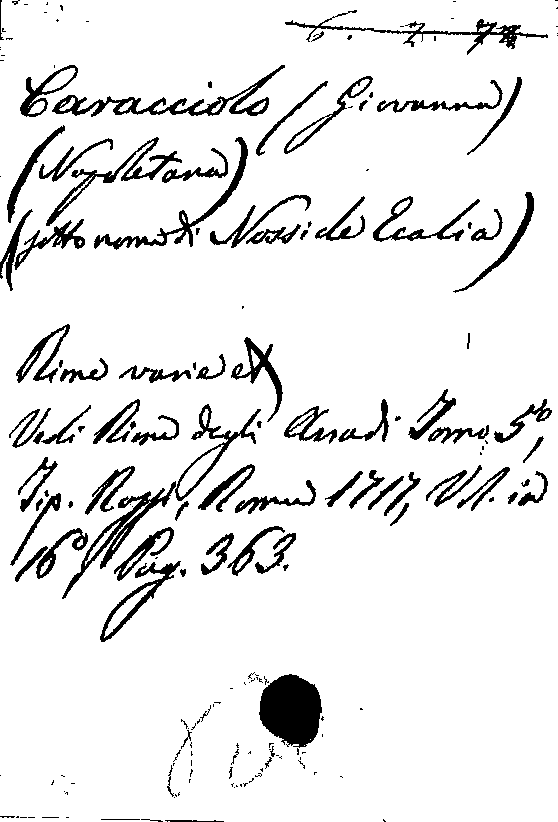 6. 2. 72
Caracciolo (Giovanna)
(Napoletana)
(sotto nome di Nosside Ecalia)
Rime varie
Vedi Rime degli Arcadi Tomo 5º,
Tip. Rossi, Roma 1717, Vol. in
16º, Pag. 363.